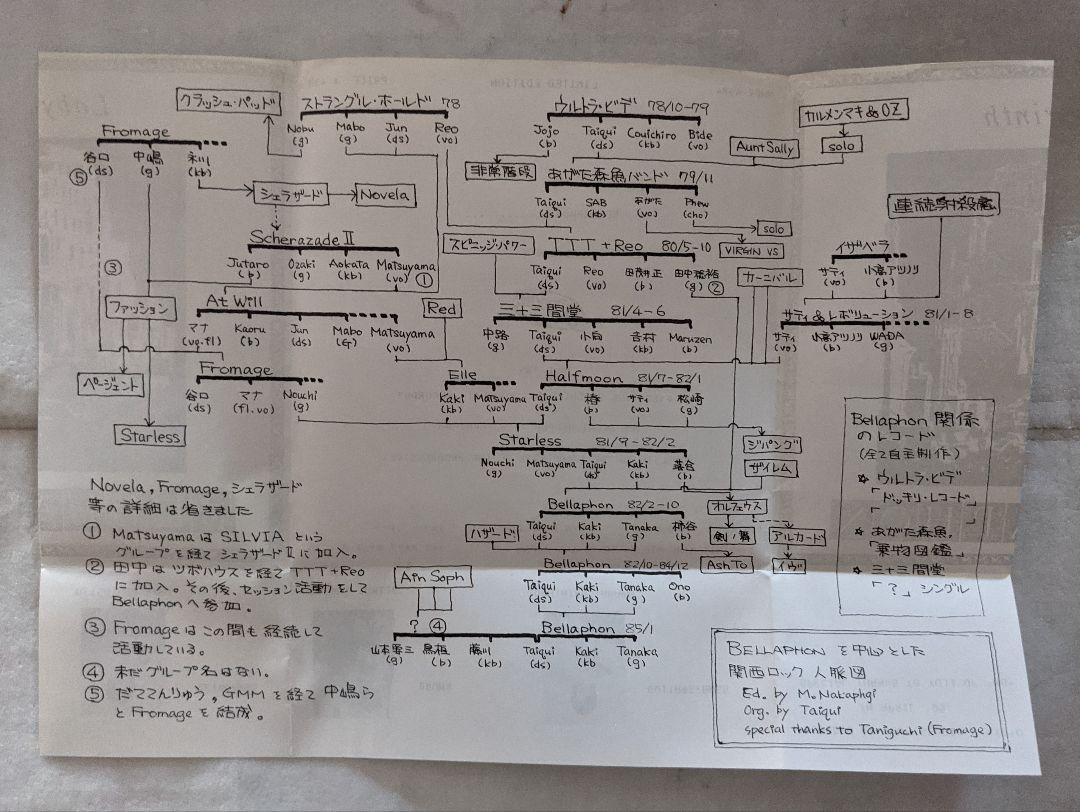 クラッシュ・パッド
ストラングル・ホールド 78
Nobu (g) Mabo (g) Jun (ds) Reo (vo)
ウルトラ・ビデ 78/10-79
Jojo (b) Taiqui (ds) Couichiro (kb) Bide (vo)
カルメンマキ&OZ
solo
Aunt Sally
Fromage
谷口 (ds) 中嶋 (g) 永川 (kb)
⑤
非常階段
あがた森魚バンド 79/11
Taiqui (ds) SAB (kb) あがた (vo) Phew (cho)
シェラザード
Novela
連続射殺魔
solo
VIRGIN VS
Scherazade II
Jutaro (b) Ozaki (g) Aokata (kb) Matsuyama (vo) ①
スピニッジ・パワー
TTT + Reo 80/5-10
Taiqui (ds) Reo (vo) 田茂 正 (b) 田中 (g) ②
イザベラ
サティ (vo) 小高アツノリ (b)
カーニバル
③
ファッション
At Will
マナ (vo.fl) Kaoru (b) Jun (ds) Mabo (Gr) Matsuyama (vo)
Red
三十三間堂 81/4-6
中路 (g) Taiqui (ds) 小向 (vo) 吉村 (kb) Maruzen (b)
サティ&レボリューション 81/1-8
サティ (vo) 小高アツノリ (b) WADA (g)
ページェント
Fromage
谷口 (ds) マナ (fl.vo) Nouchi (g)
Elle
Kaki (kb) Matsuyama (vo)
Halfmoon 81/7-82/1
Taiqui (ds) 椿 (b) サティ (vo) 松崎 (g)
Starless
Starless 81/9-82/2
Nouchi (g) Matsuyama (vo) Taiqui (ds) Kaki (kb) 落合 (b)
ジパング
ザイレム
Bellaphon 82/2-10
Taiqui (ds) Kaki (kb) Tanaka (g) 柿谷 (b)
ハザード
オルフェウス
剣の舞
アルカード
Ash To
イヴ
Bellaphon 82/10-84/12
Taiqui (ds) Kaki (kb) Tanaka (g) Ono (b)
Ain Soph
? ④
Bellaphon 85/1
山本要三 (g) 鳥垣 (b) 藤川 (kb) Taiqui (ds) Kaki (kb Tanaka (g)
Novela, Fromage, シェラザード
等の詳細は省きました
① Matsuyama は SILVIA という
グループを経て シェラザードⅡに加入。
② 田中はツボハウスを経て TTT+Reo
に加入。その後、セッション活動をして
Bellaphonへ参加。
③ Fromageはこの間も継続して
活動している。
④ 未だグループ名はない。
⑤ だててんりゅう, GMMを経て 中嶋ら
と Fromage を結成。
Bellaphon 関係
のレコード
(全て自主制作)
☆ ウルトラ・ビデ
「ドッキリ・レコード
」
☆ あがた森魚,
「乗物図鑑」
☆ 三十三間堂
「?」シングル
BELLAPHON を中心とした
関西ロック人脈図
Ed. by M. Nakaphgi
Org. by Taiqui
special thanks to Taniguchi (Fromage)